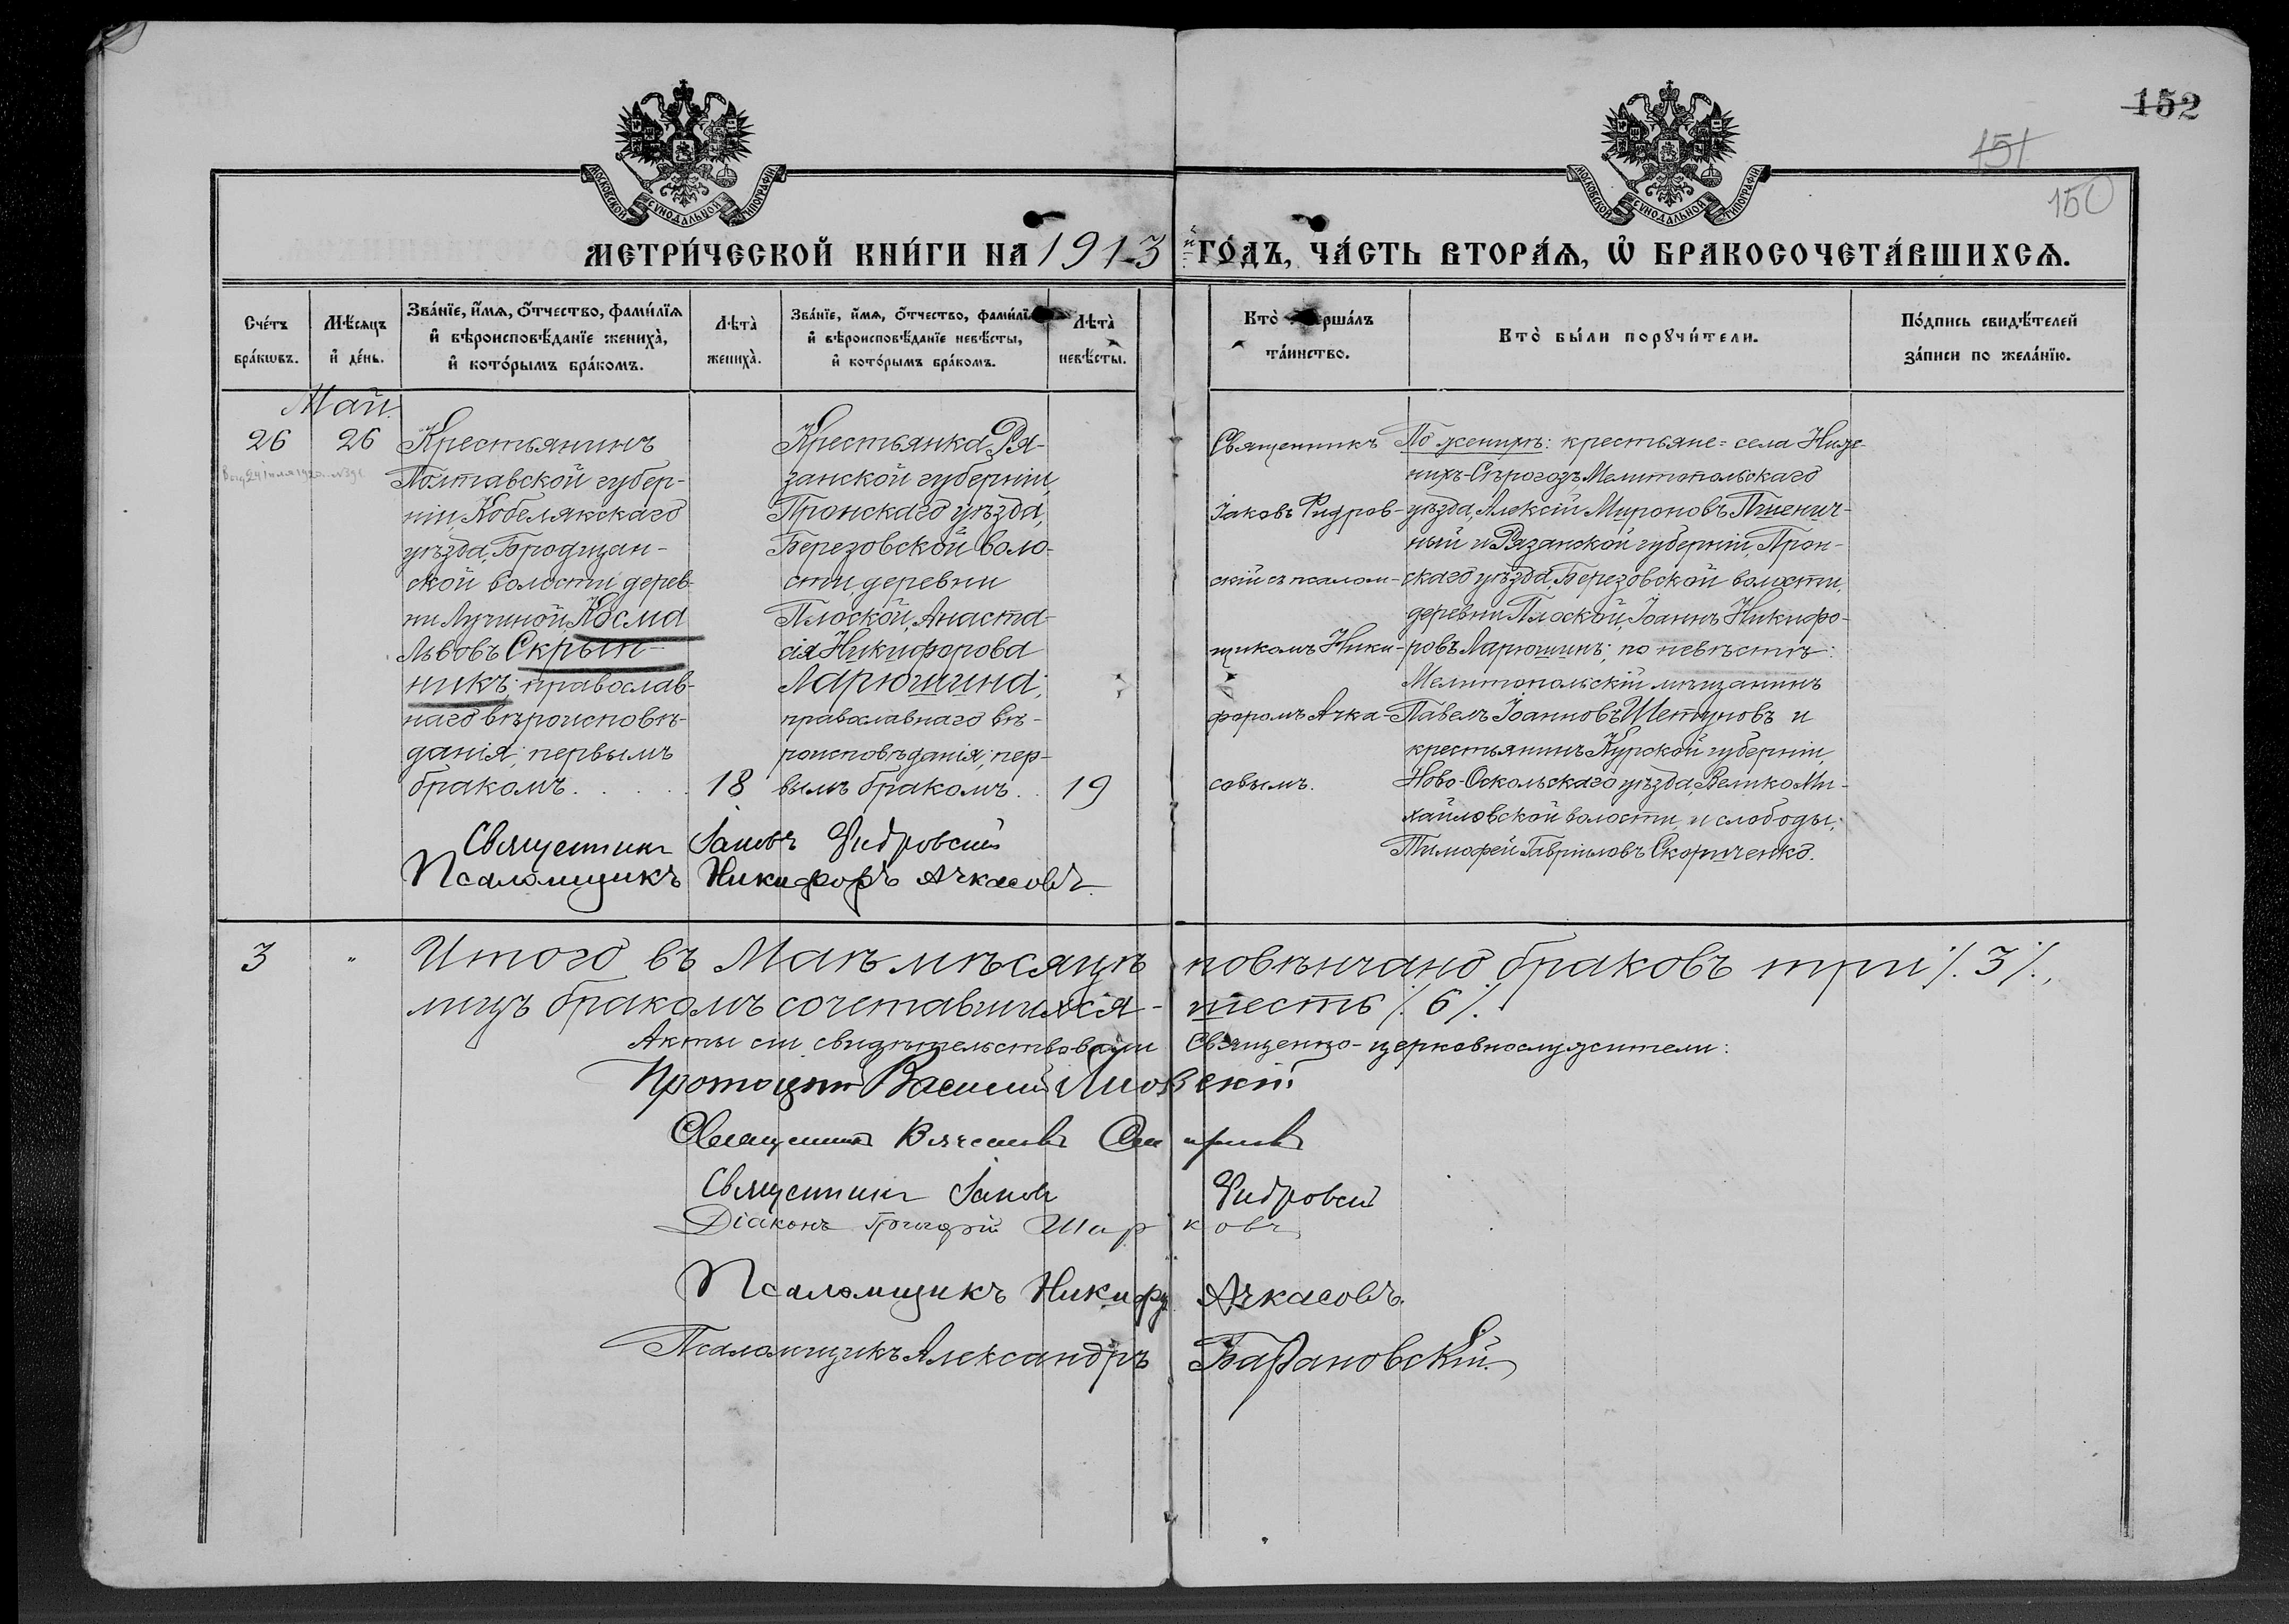 152
151
150
МОСКОВСКОЙ СУНОДАЛЬНОЙ ТИПОГРАФІИ
МОСКОВСКОЙ СУНОДАЛЬНОЙ ТИПОГРАФІИ
МЕТРИ́ЧЕСКОЙ КНИ́ГИ НА 1913 й ГО́ДЪ, ЧА́СТЬ ВТОРА́Ѧ, Ѽ БРАКОСОЧЕТА́ВШИХСѦ.
Сче́тъ бра́кѡвъ.
Мѣ́сѧцъ и҆ де́нь.
Зва́нїе, и҆́мѧ, ѻ҆́тчество, фами́лїѧ и҆ вѣроисповѣ́данїе жениха̀, и҆ кото́рымъ бра́комъ.
Лѣта̀ жениха̀.
Зва́нїе, и҆́мѧ, ѻ҆́тчество, фами́лї и҆ вѣроисповѣ́данїе невѣ́сты, и҆ кото́рымъ бра́комъ.
Лѣта̀ невѣ́сты.
Кто̀ ерша́лъ та́инство.
Кто̀ бы́ли порꙋчи́тели.
По́дпись свидѣ́телей за́писи по жела́нїю.
Май
26
26
Крестьянинъ
Полтавской губер-
ніи, Кобелякскаго
уѣзда, Бродщан-
ской волости, дерев-
ни Лучиной, Косма
Львовъ Скрын-
никъ; православ-
наго вѣроисповѣ-
данія; первымъ
бракомъ. . . . . .
18
Крестьянка Ря-
занской губерніи,
Пронскаго уѣзда,
Березовской воло-
сти, деревни
Плоской, Анаста-
сія Никифорова
Ларюшина;
православнаго вѣ-
роисповѣданія; пер-
вымъ бракомъ. .
19
Священникъ
Іаковъ Фидров-
скій съ псалом-
щикомъ Ники-
форомъ Ачка-
совымъ.
По женихѣ: крестьяне= села Ниж-
нихъ-Сѣрогозъ, Мелитопольскаго
уѣзда, Алексій Мироновъ Пшенич-
ный и Рязанской губерніи, Прон-
скаго уѣзда, Березовской волости,
деревни Плоской, Іоаннъ Никифо-
ровъ Ларюшинъ; по невѣстѣ:
Мелитопольскій мѣщанинъ
Павелъ Іоанновъ Шетуновъ и
крестьянинъ Курской губерніи,
Ново-Оскольскаго уѣзда, Велико Ми-
хайловской волости и слободы,
Тимофей Гавріиловъ Скориченко.
Священникъ Іаковъ Фидровскій
Псаломщикъ Никифоръ Ачкасовъ
3
"
Итого въ Маѣ мѣсяцѣ повѣнчано браковъ три /. 3 /.,
лицъ бракомъ сочетавшихся - шесть /. 6 /.
Акты сіи свидѣтельствовали Священно-церковнослужители:
Священникъ Вячеславъ
Священникъ Іаковъ Фидровскій
Діаконъ Григорій Шарковъ
Псаломщикъ Никифръ Ачкасовъ.
Псаломщикъ Александръ Барановскій.